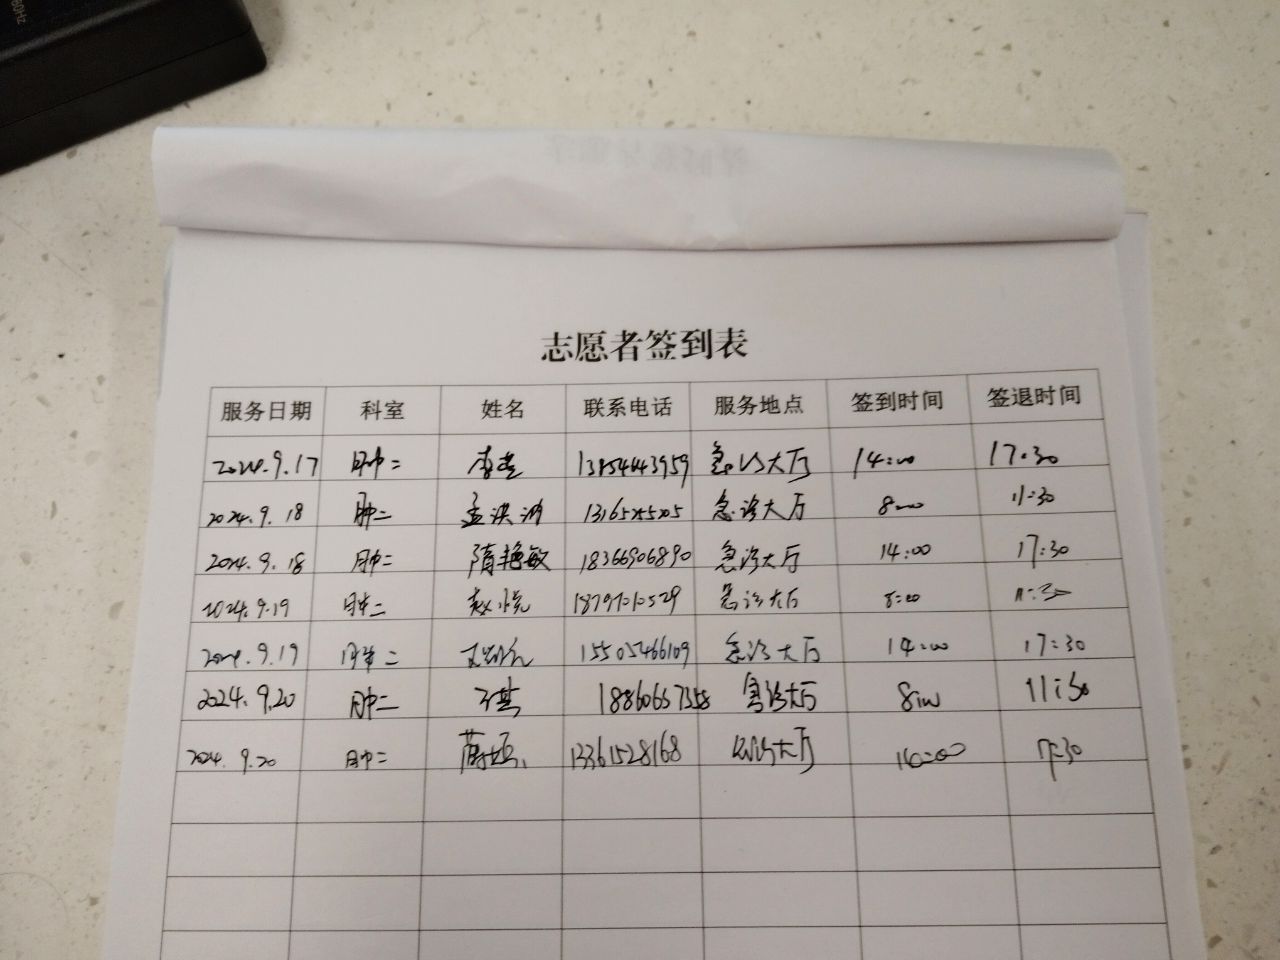 60Hz
志愿者签到表
服务日期 科室 姓名 联系电话 服务地点 签到时间 签退时间
2024.9.17 肿二 13854443959 急诊大厅 14:00 17:30
2024.9.18 肿二 孟洪 急诊大厅 8:00 11:30
2024.9.18 肿二 隋艳敏 18366906890 急诊大厅 14:00 17:30
2024.9.19 肿二 赵悦 急诊大厅 8:00 11:30
2024.9.19 肿二 15505466109 急诊大厅 14:00 17:30
2024.9.20 肿二 急诊大厅 8:00 11:30
2024.9.20 肿二 13361528168 急诊大厅 17:30